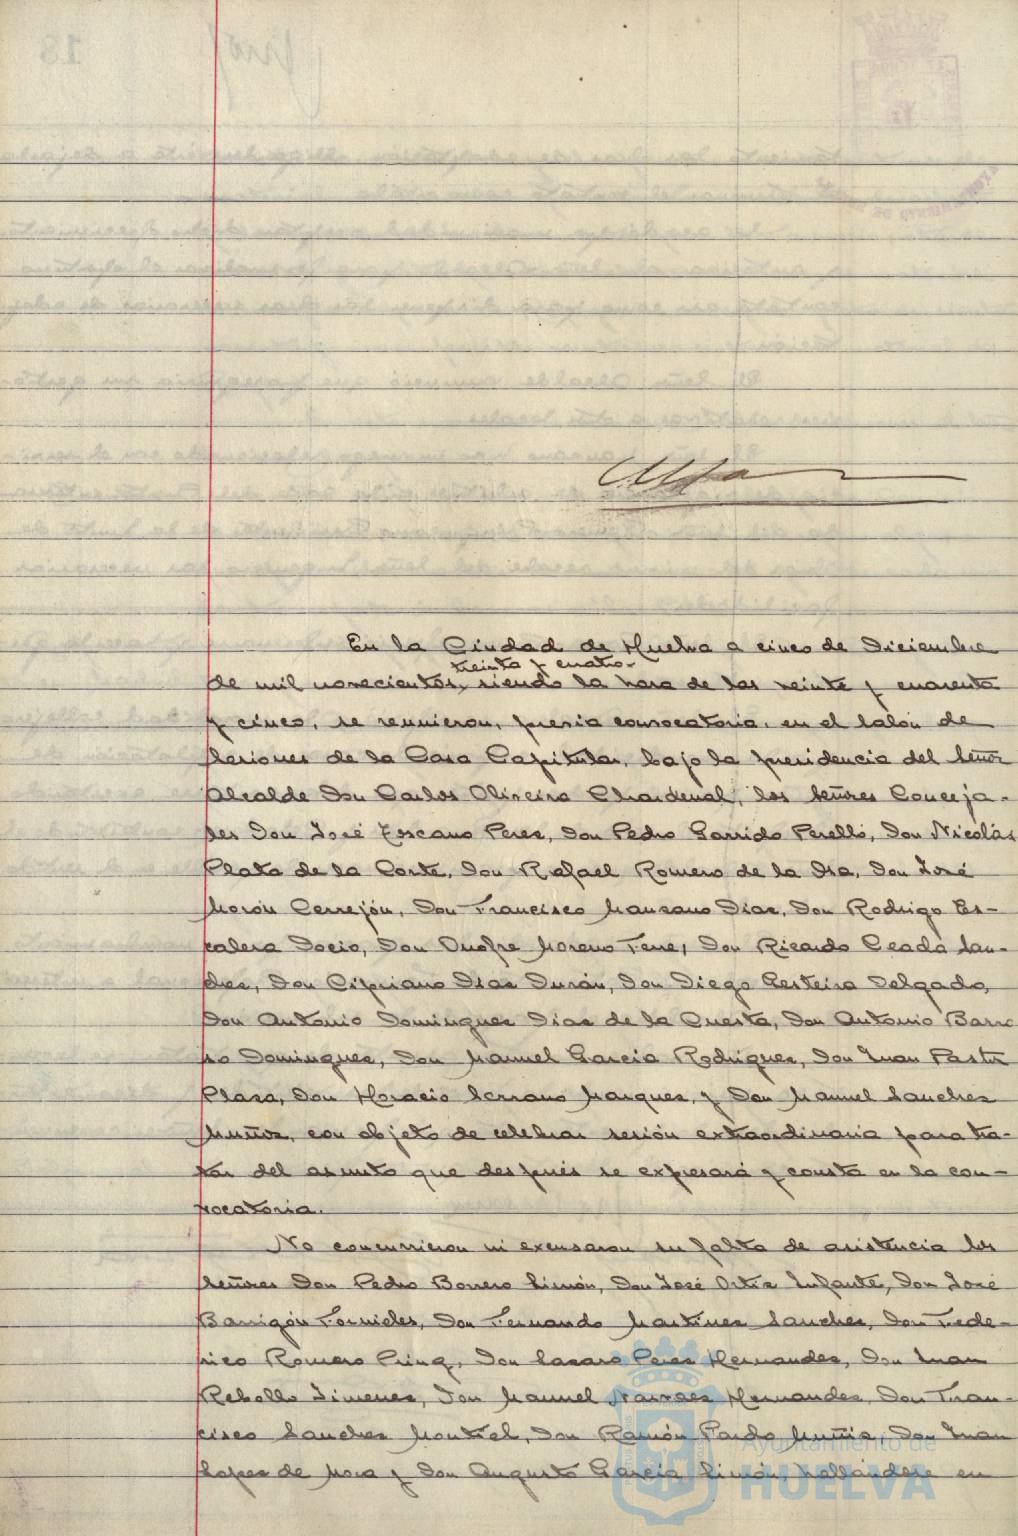 En la Ciudad de Huelva a cinco de Diciembre
treinta y cuatro
de mil novecientos, siendo la hora de las veinte y cuarenta
y cinco, se reunieron, previa convocatoria, en el Salón de
Sesiones de la Casa Capitular, bajo la presidencia del Señor
Alcalde Don Carlos Oliveira Chardenal, los señores Conceja-
les Don José Toscano Perez, Don Pedro Garrido Perelló, Don Nicolás
Plata de la Corte, Don Rafael Romero de la Isa, Don José
Morón Cerrejón, Don Francisco Manzano Diaz, Don Rodrigo Es-
calera Docio, Don Onofre Moreno Ferre, Don Ricardo Ceada San-
chez, Don Cipriano Diaz Durán, Don Diego Delgado,
Don Antonio Dominguez Diaz de la Cuesta, Don Antonio Barro
so Dominguez, Don Manuel Garcia Rodriguez, Don Juan Pastor
Plaza, Don Horacio Serrano Marquez, y Don Manuel Sanchez
Muñoz, con objeto de celebrar sesión extraordinaria para tra-
tar del asunto que después se expresará y consta en la con-
vocatoria.
No concurrieron ni excusaron su falta de asistencia los
señores Don Pedro Borrero Limón, Don José Ortiz Infante, Don José
Barrigón Fornieles, Don Fernando Martinez Sanchez, Don Fede-
rico Romero Don Lazaro Perez Hernandez, Don Juan
Rebollo Jimenez, Don Manuel Narvaez Hernandez, Don Fran-
cisco Sanchez Montiel, Don Ramón Pardo Don Juan
Lopez de Mora y Don Augusto Garcia Limón, hallándose en
Ayuntamiento de
HUELVA